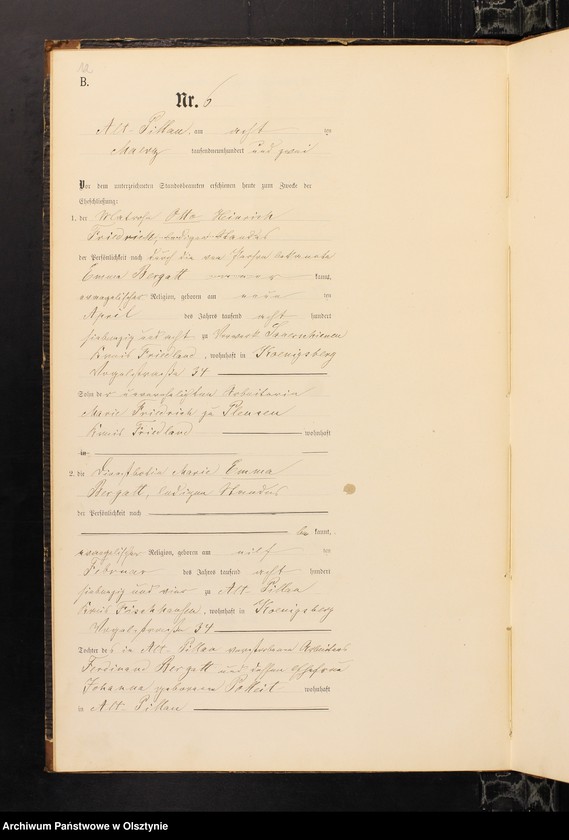 B.
Nr. 6
Alt-Pillau, am acht ten
Maerz tausendneunhundert und zwei
Vor dem unterzeichneten Standesbeamten erschienen heute zum Zwecke der
Eheschließung:
1. der Matrose Otto Heinrich
Friedrich, ledigen Standes
der Persönlichkeit nach durch die von Person bekannte
Emma Bergatt kannt,
evangelischer Religion, geboren am neun ten
April des Jahres tausend acht hundert
siebenzig und acht zu Vorwerk
Kreis Friedland, wohnhaft in Koenigsberg
Orgelstrasse 34
Sohn der unverehelichten Arbeiterin
Marie Friedrich zu Plensen
Kreis Friedland wohnhaft
in
2. die Dienstbotin Marie Emma
Bergatt, ledigen Standes
der Persönlichkeit nach
be kannt,
evangelischer Religion, geboren am eilf ten
Februar des Jahres tausend acht hundert
siebenzig und vier zu Alt-Pillau
Kreis Fischhausen, wohnhaft in Koenigsberg
Orgelstrasse 34
Tochter des in Alt-Pillau verstorbenen Arbeiters
Ferdinand Bergatt und dessen Ehefrau
Johanna geborenen Potreit wohnhaft
in Alt-Pillau
Archiwum Państwowe w Olsztynie